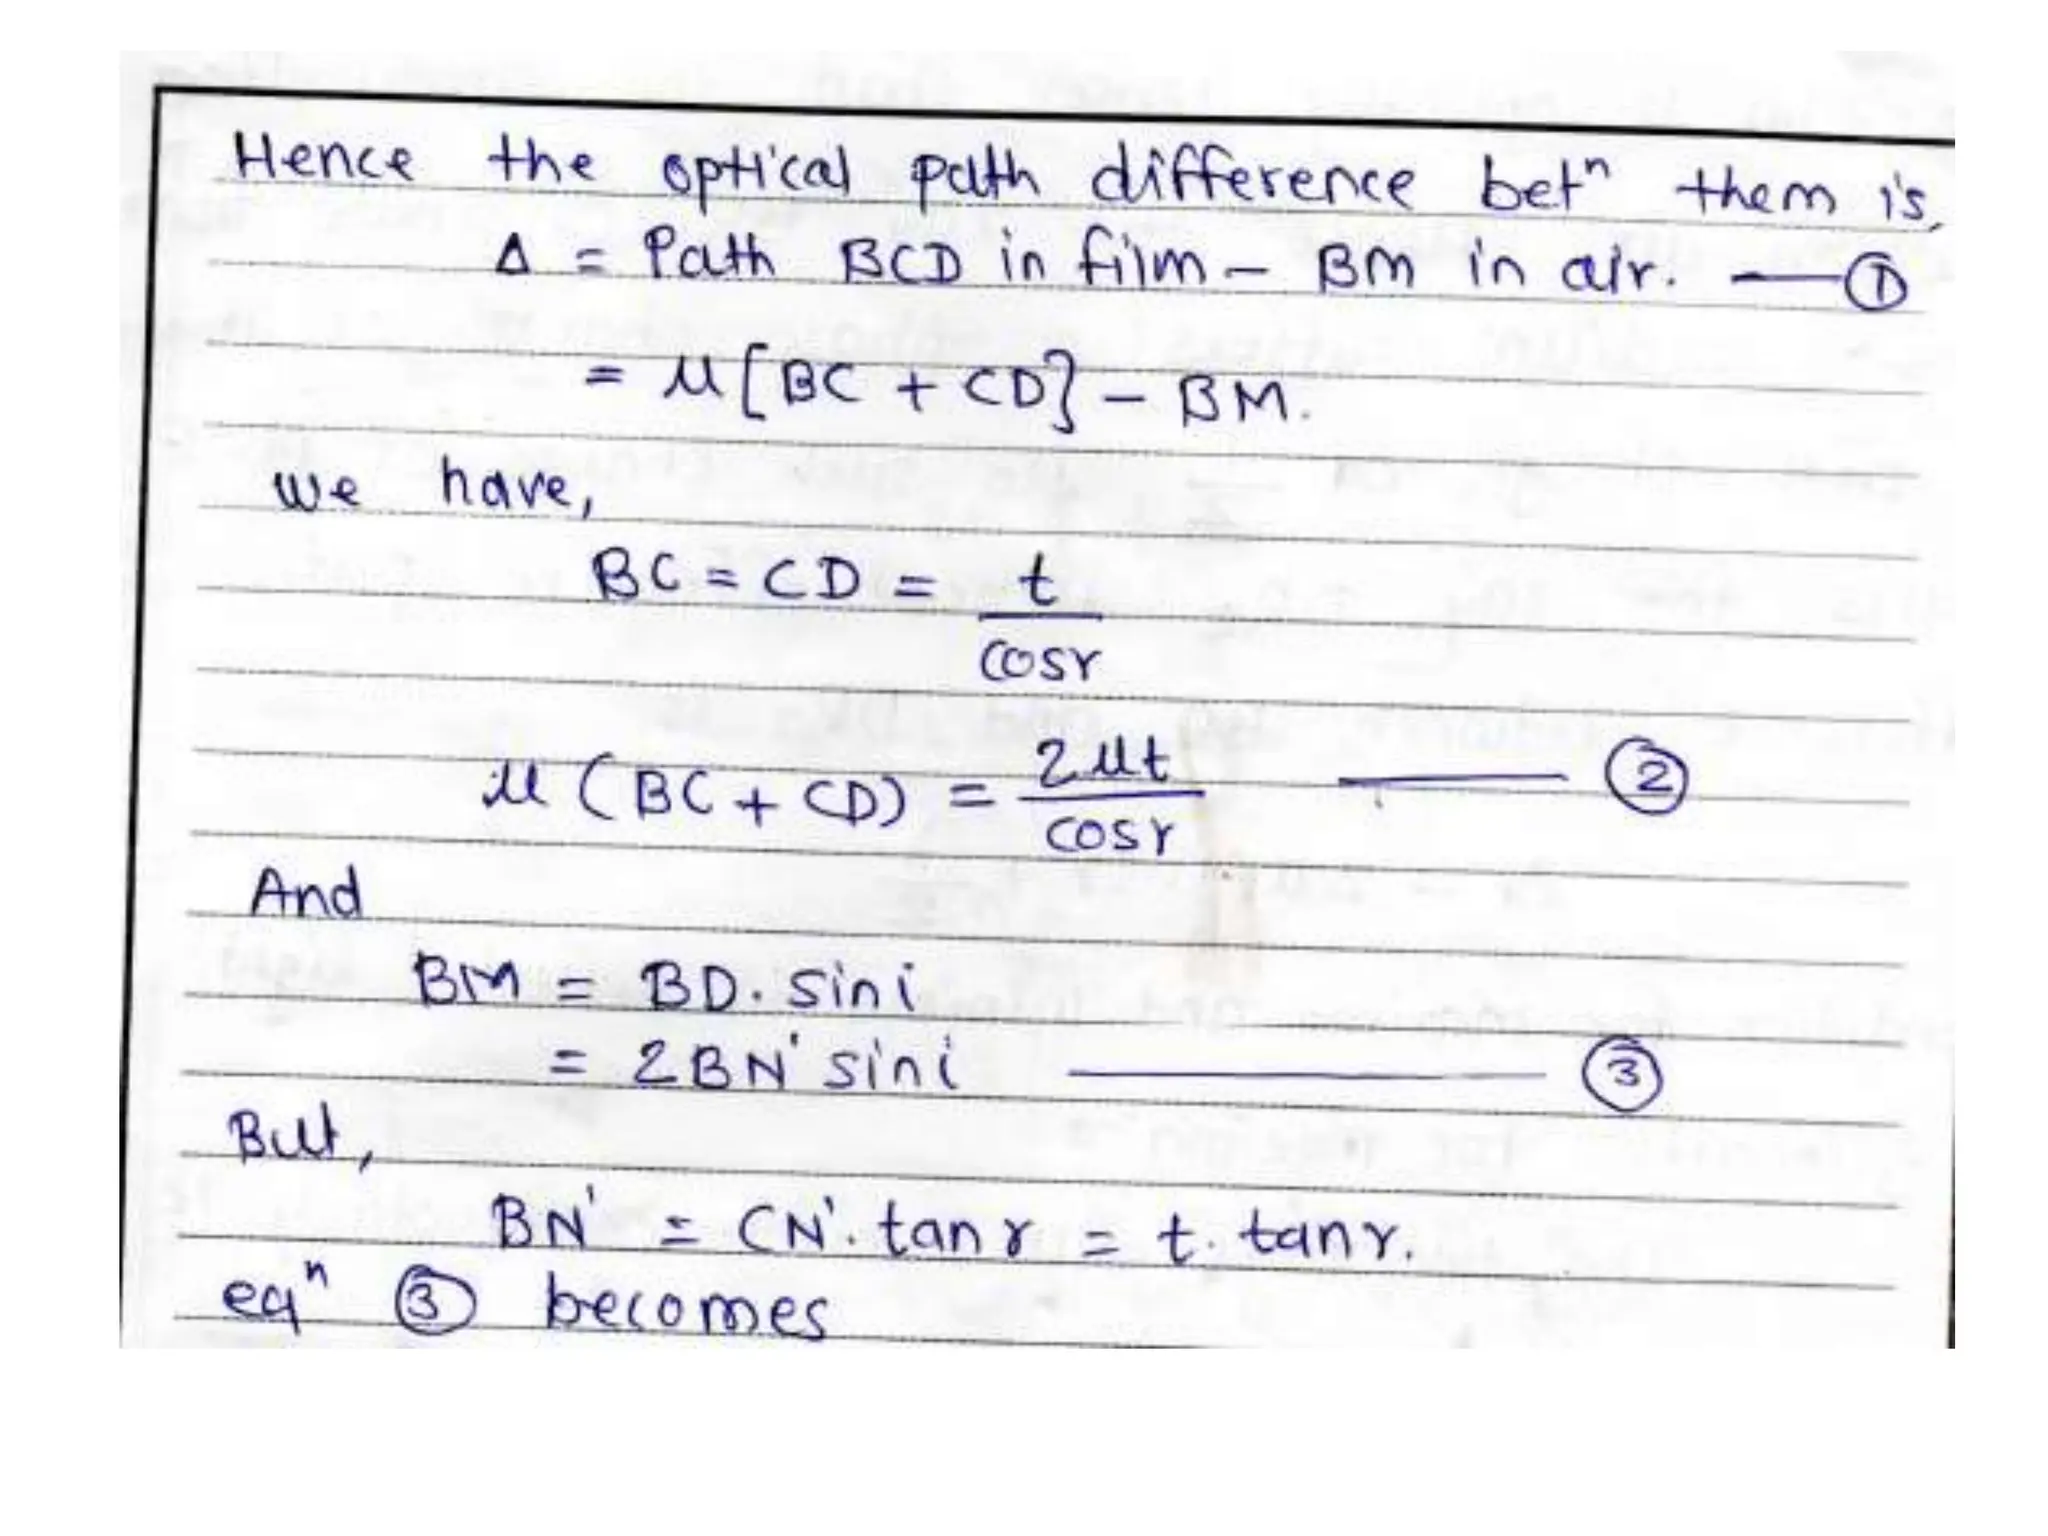 Hence the optical path difference betⁿ them is,
Δ = Path BCD in film - BM in air. — ①
= μ[BC + CD] - BM.
we have,
BC = CD = t
cosr
μ (BC + CD) = 2μt — ②
cosr
And
BM = BD. sini
= 2BN' sini — ③
But,
BN' = CN'. tanr = t. tanr.
eqⁿ ③ becomes